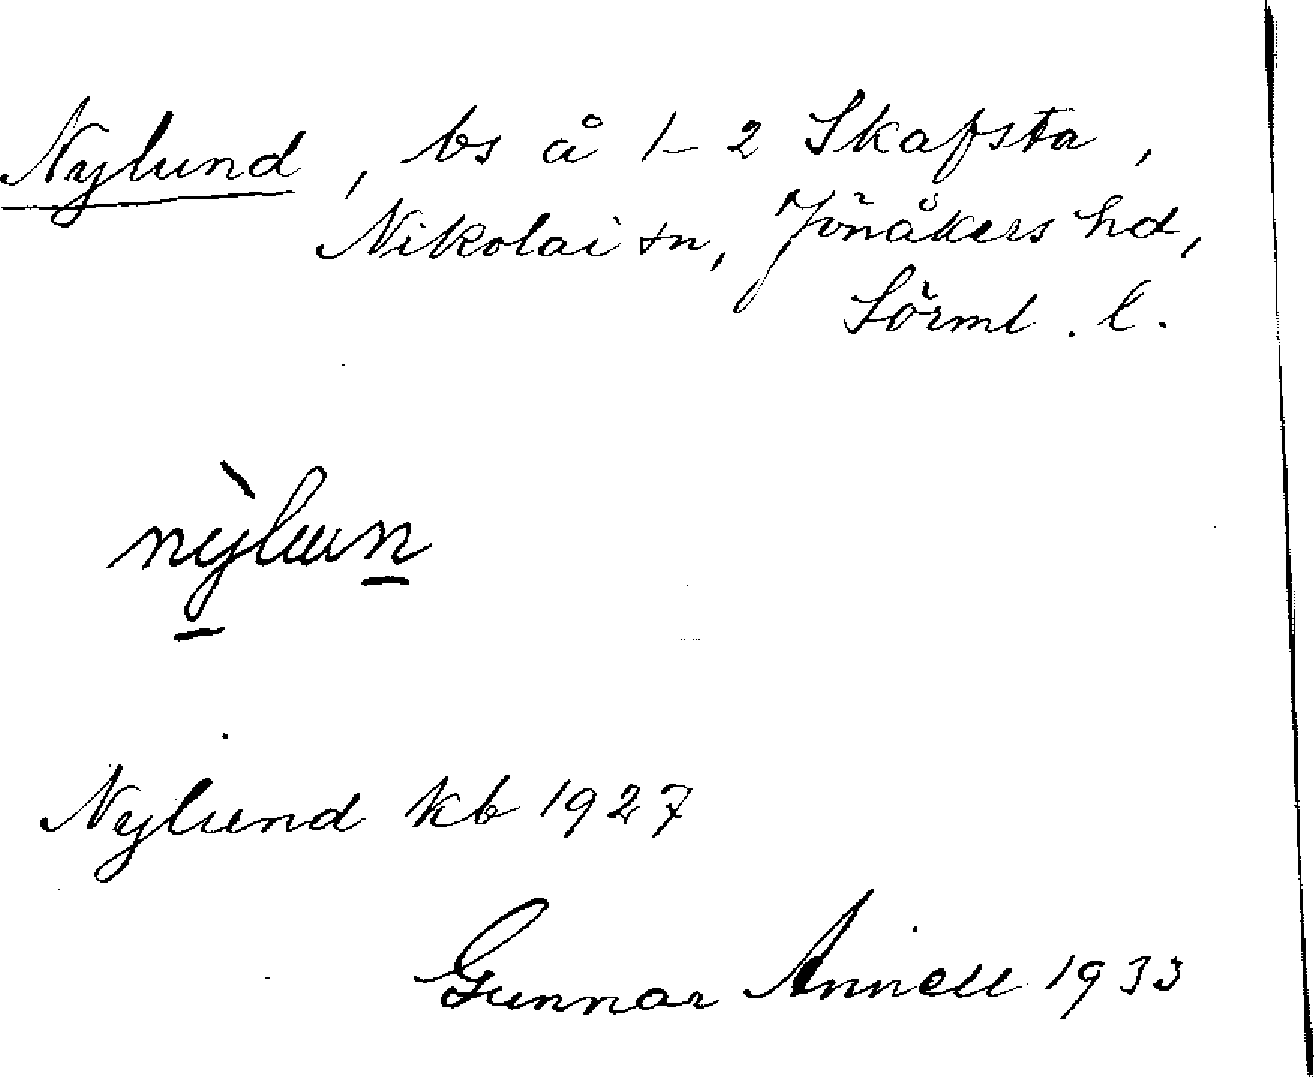 Nylund, bs å 1-2 Skafsta,
Nikolai sn, Jönåkers hd,
Sörml. l.
nỳlun
Nylund kb 1927
Gunnar Annell 1933